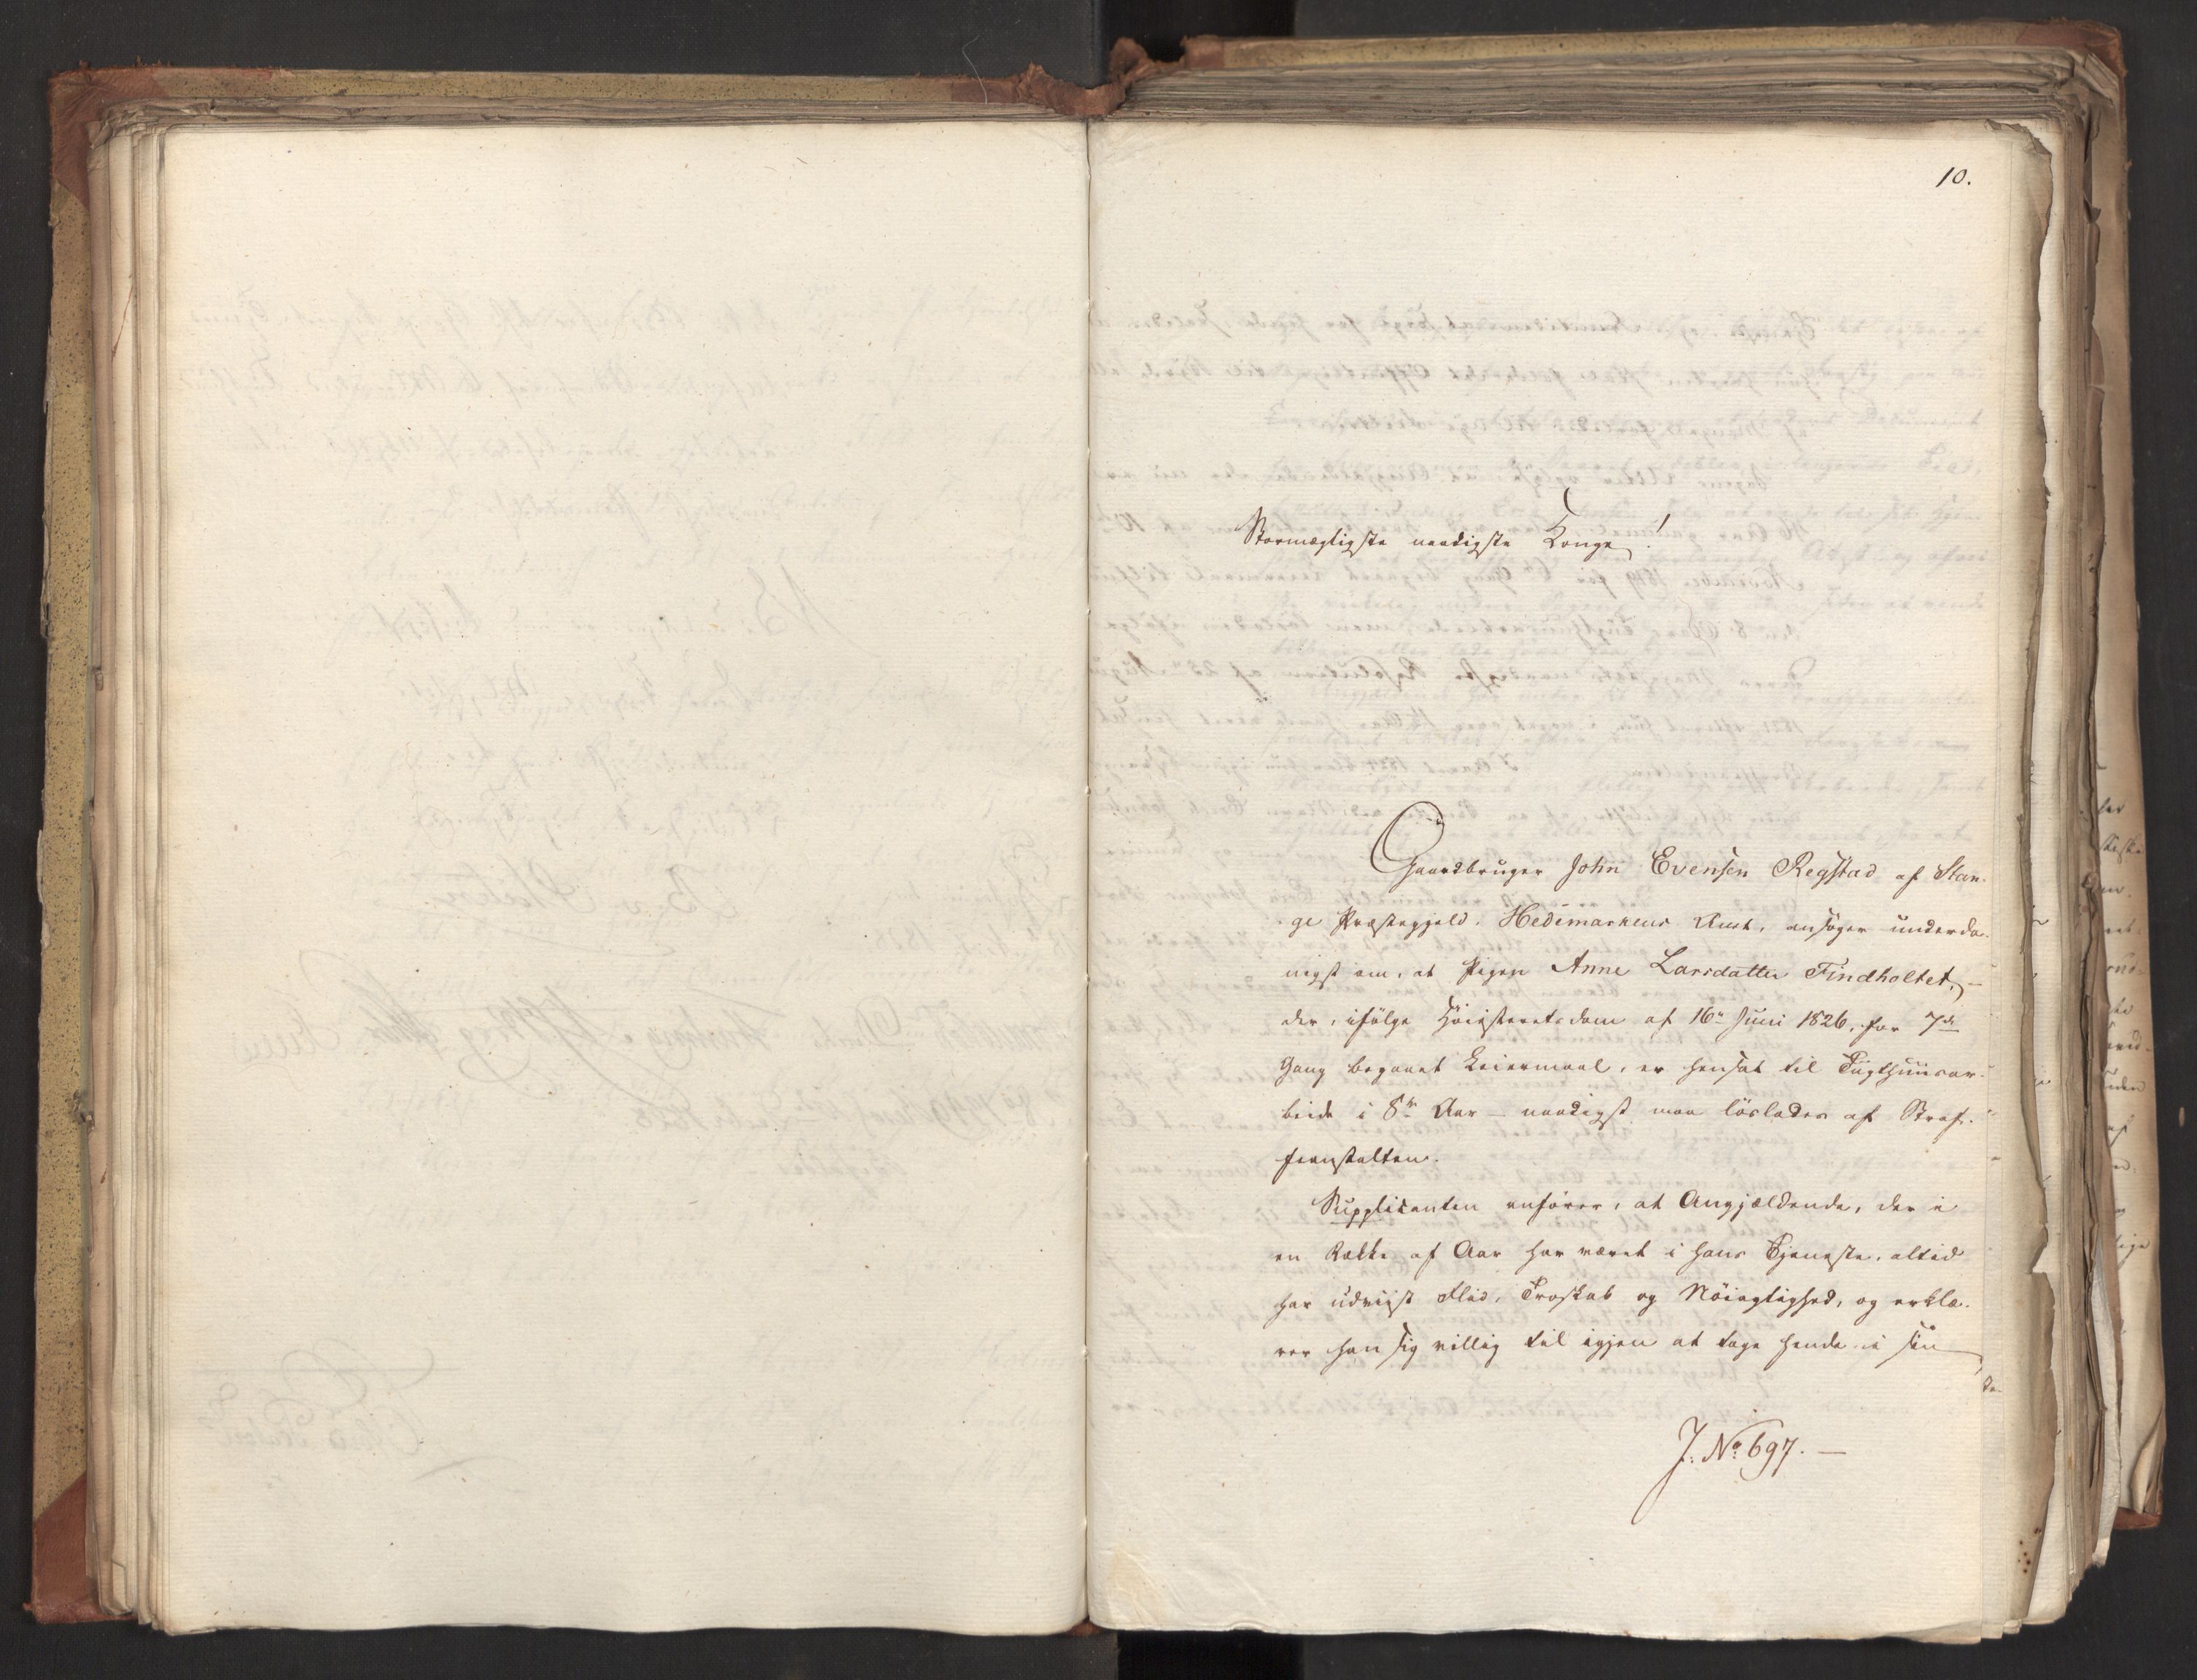 10.
Stormægtigste naadigste Konge!
Gaardbruger John Evensen Regstad af Stan-
ge Præstegjeld, Hedemarkens Amt, ansøger underda-
nigst om, at Pigen Anne Larsdatter Findholtet, –
der, ifølge Höiesteretsdom af 16de Juni 1826, for 7de
Gang begaaet Leiermaal, er hensat til Tugthuusar-
beide i 8te Aar – naadigst maa löslades af Straf-
feanstalten.
Supplicanten anförer, at Angjældende, der i
en Række af Aar har været i hans Tjeneste, altid
har udviist Flid, Troskab og Nöiagtighed, og erklæ-
rer han sig villig til igjen at tage hende i sin
J. No 697. —